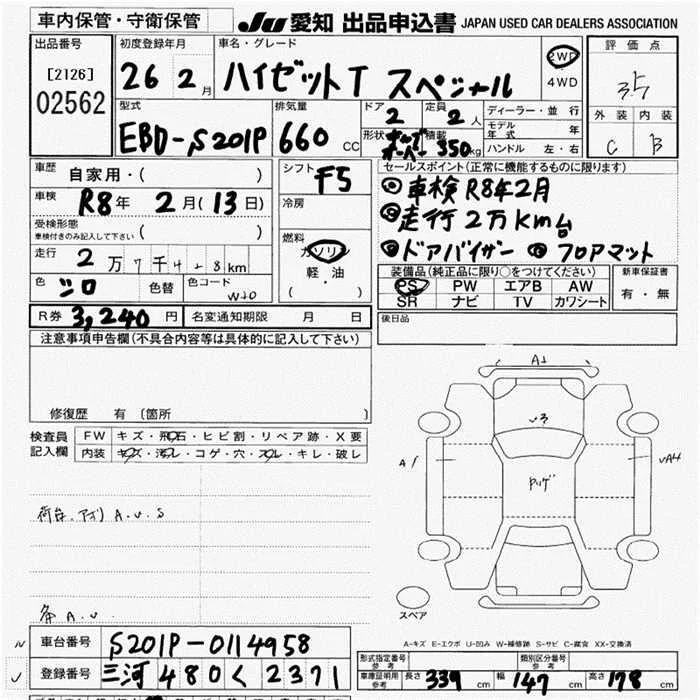 車内保管・守衛保管
JU 愛知 出品申込書 JAPAN USED CAR DEALERS ASSOCIATION
出品番号
[2126]
02562
初度登録年月
26 2月
車名・グレード
ハイゼットT スペシャル
2WD
4WD
評価点
3.5
外装 内装
C B
型式
EBD-S201P
排気量
660 CC
ドア
2
定員
2人
形状
積載
350kg
ディーラー・並行
モデル年式 年
ハンドル 左・右
車歴
自家用・( )
車検
R8年 2月(13日)
受検形態
車検付きのみ記入して下さい ( )
走行
2万7千428km
色
シロ
色替
色コード
W20
シフト
F5
冷房
燃料
ガソリン
軽・油
( )
セールスポイント(正常に機能するものに限ります)
◎車検R8年2月
◎走行2万Km台
◎ドアバイザー ◎フロアマット
装備品(純正品に限り○をつけてください)
PS PW エアB AW
SR ナビ TV カワシート
新車保証書
有・無
R券 3,240円
名変通知期限 月 日
後日品
注意事項申告欄(不具合内容等は具体的に記入して下さい)
修復歴 有 (箇所 )
検査員記入欄
FW キズ・飛石・ヒビ割・リペア跡・X要
内装 キズ・汚レ・コゲ・穴・スレ・キレ・破レ
荷台、アオリ A.U.S
各 A.U.
A1
U3
A1
UA4
スペア
A-キズ E-エクボ U-凹み W-補修跡 S-サビ C-腐食 XX-交換済
車台番号 S201P-0114958
登録番号 三河 480 く 2371
形式指定番号
参考
類別区分番号
参考
車庫証明用
参考
長さ 339 cm 幅 147 cm 高さ 178 cm